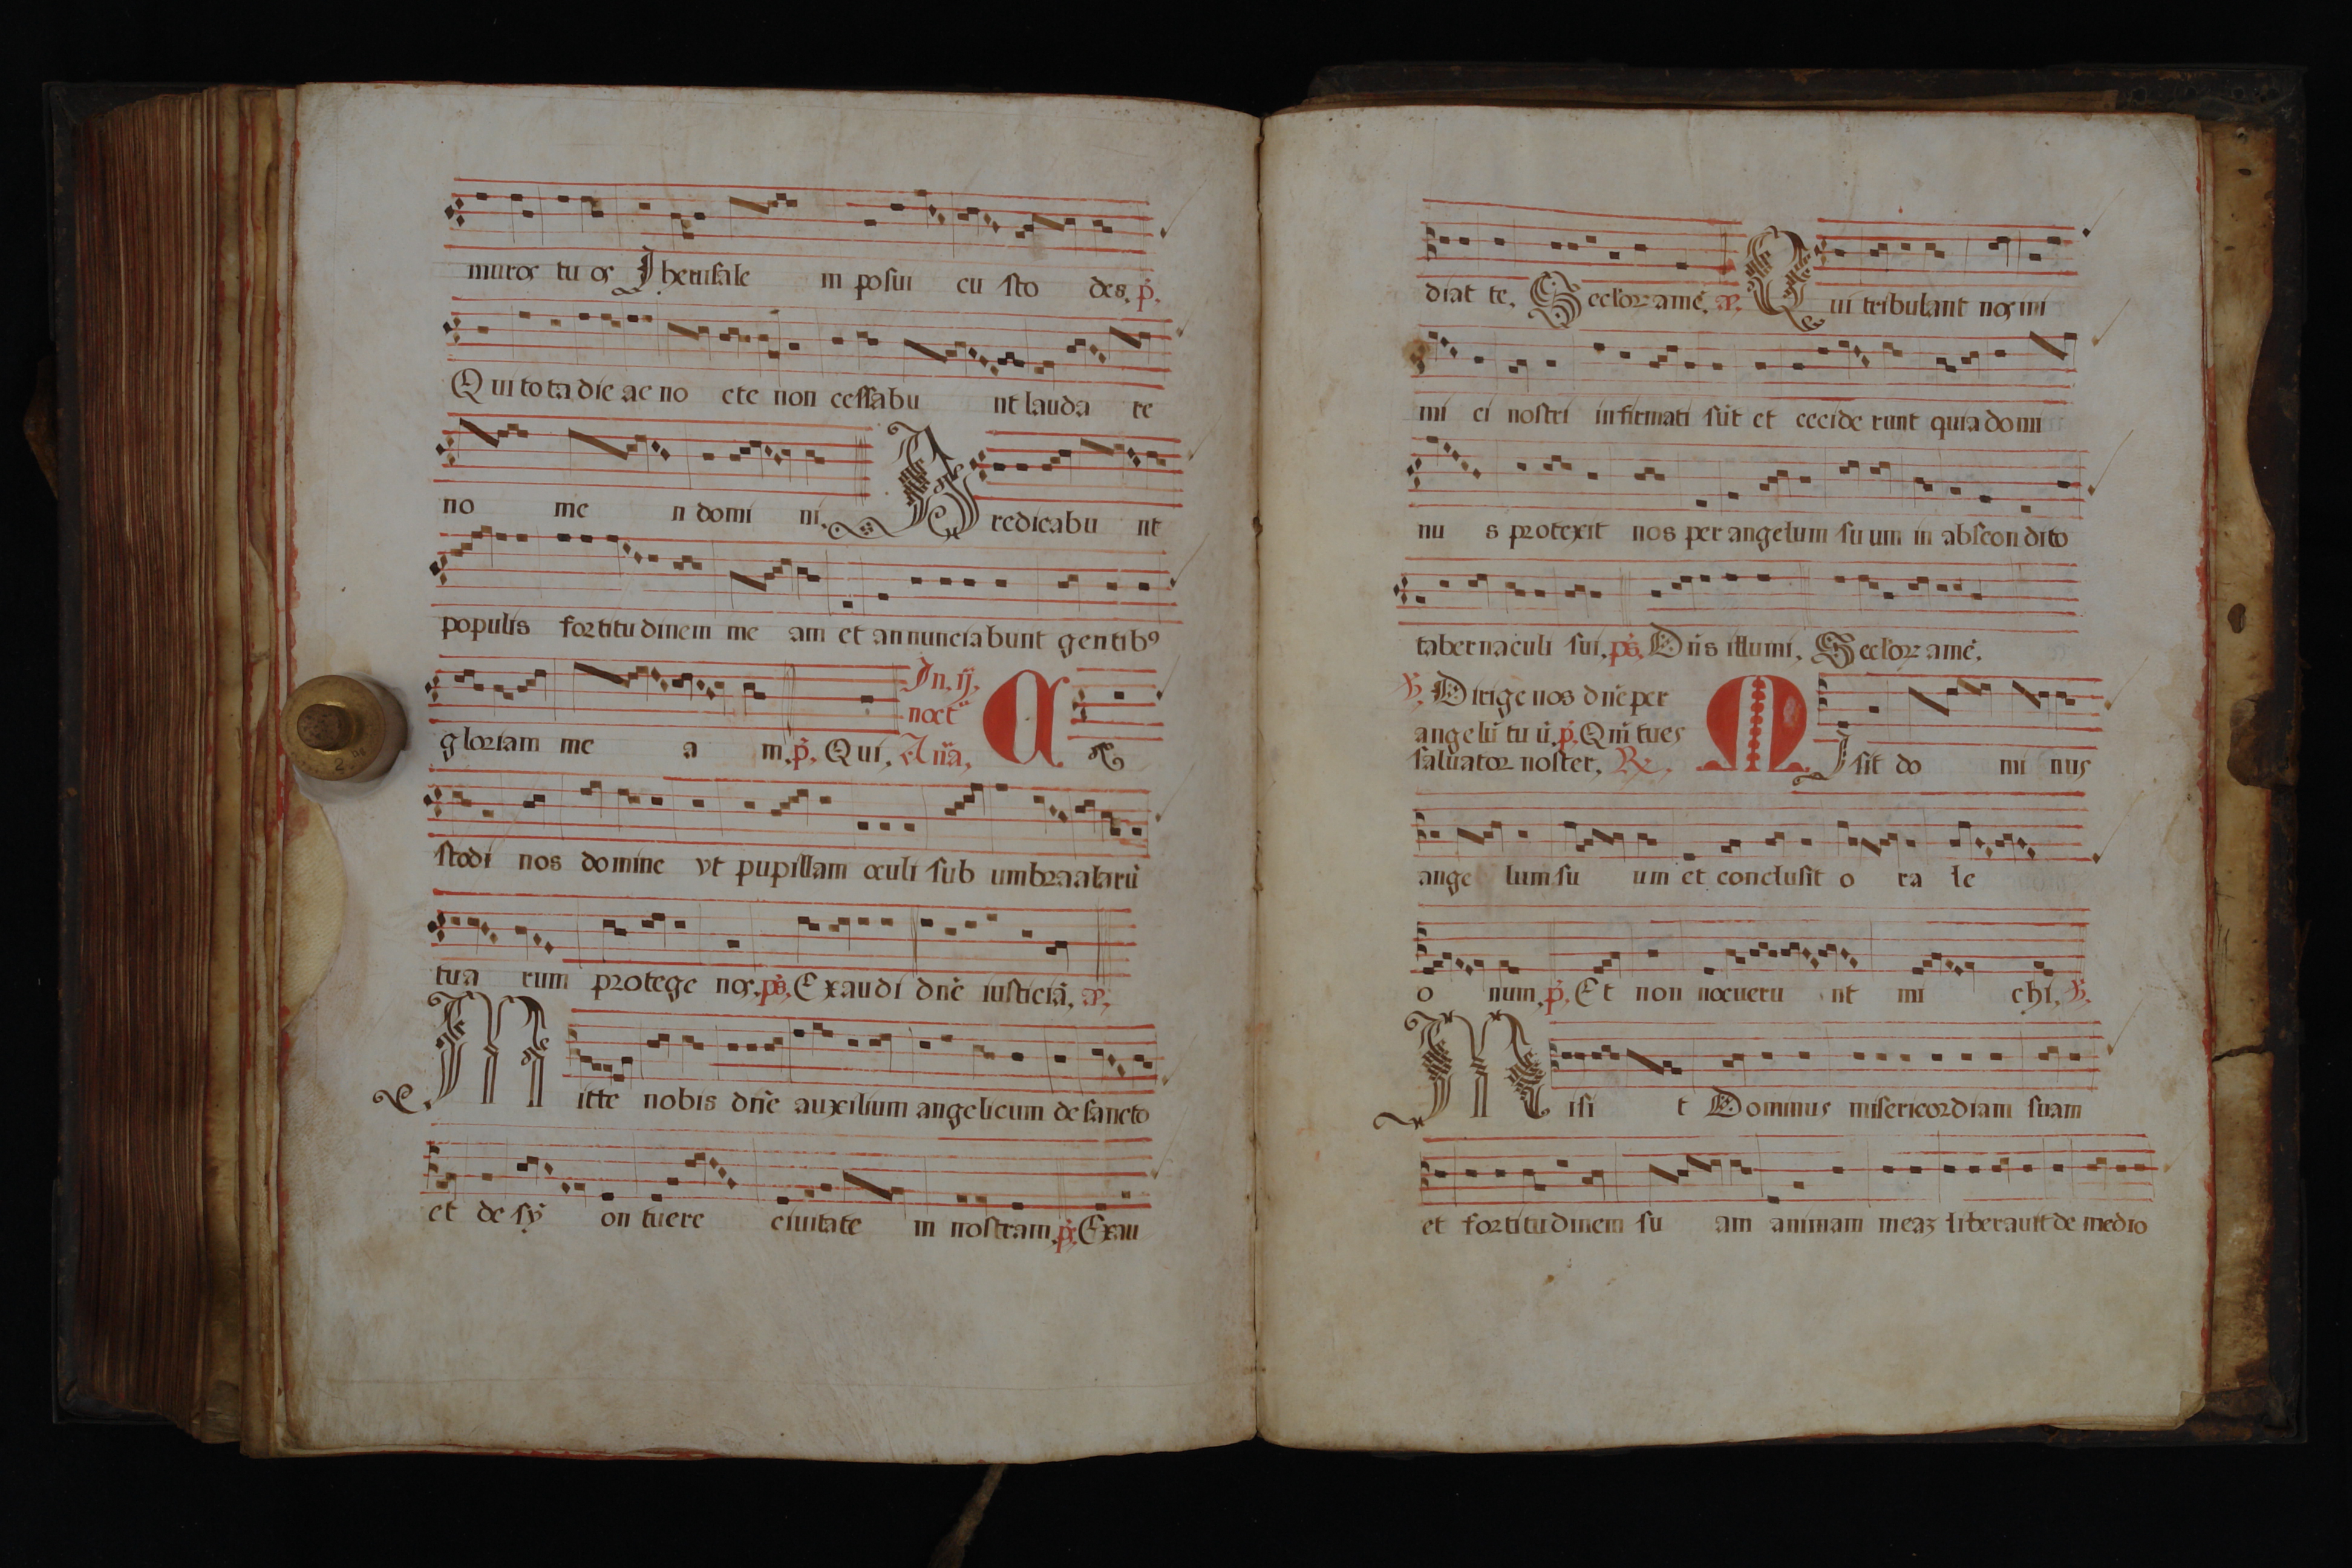 muros tu os Jherusale m posui cu sto des. p̃.
Qui tota die ac no cte non cessabu nt lauda re
no me n domi ni. Predicabu nt
populis fortitudinem me am et annunciabunt gentibꝰ
gloriam me a m. p̃. Qui, In. ij. noct̃ Añā, Cu
stodi nos domine vt pupillam oculi sub umbra alarū
tua rum protege nos. ps̃. Exaudi dñe iusticiā, æ.
Mitte nobis dñe auxilium angelicum de sancto
et de sy on tuere ciuitate m nostram. ps̃. Exau
diat te. Seclor amē. æ. Qui tribulant nos ini
mi ci nostri infirmati sūt et cecide runt quia domi
nu s protexit nos per angelum su um in abscondito
tabernaculi sui. ps̃. Dñs illumi. Seclor amē.
℣. Dirige nos dñe per
angelū tuū. p̃. Qui tu es
saluator noster. ℟. MIsit do mi nus
ange lum su um et conclusit o ra le
o num. p̃. Et non nocueru nt mi chi. ℣.
Misi t Dominus misericordiam suam
et fortitudinem su am animam meaꝫ liberauit de medio